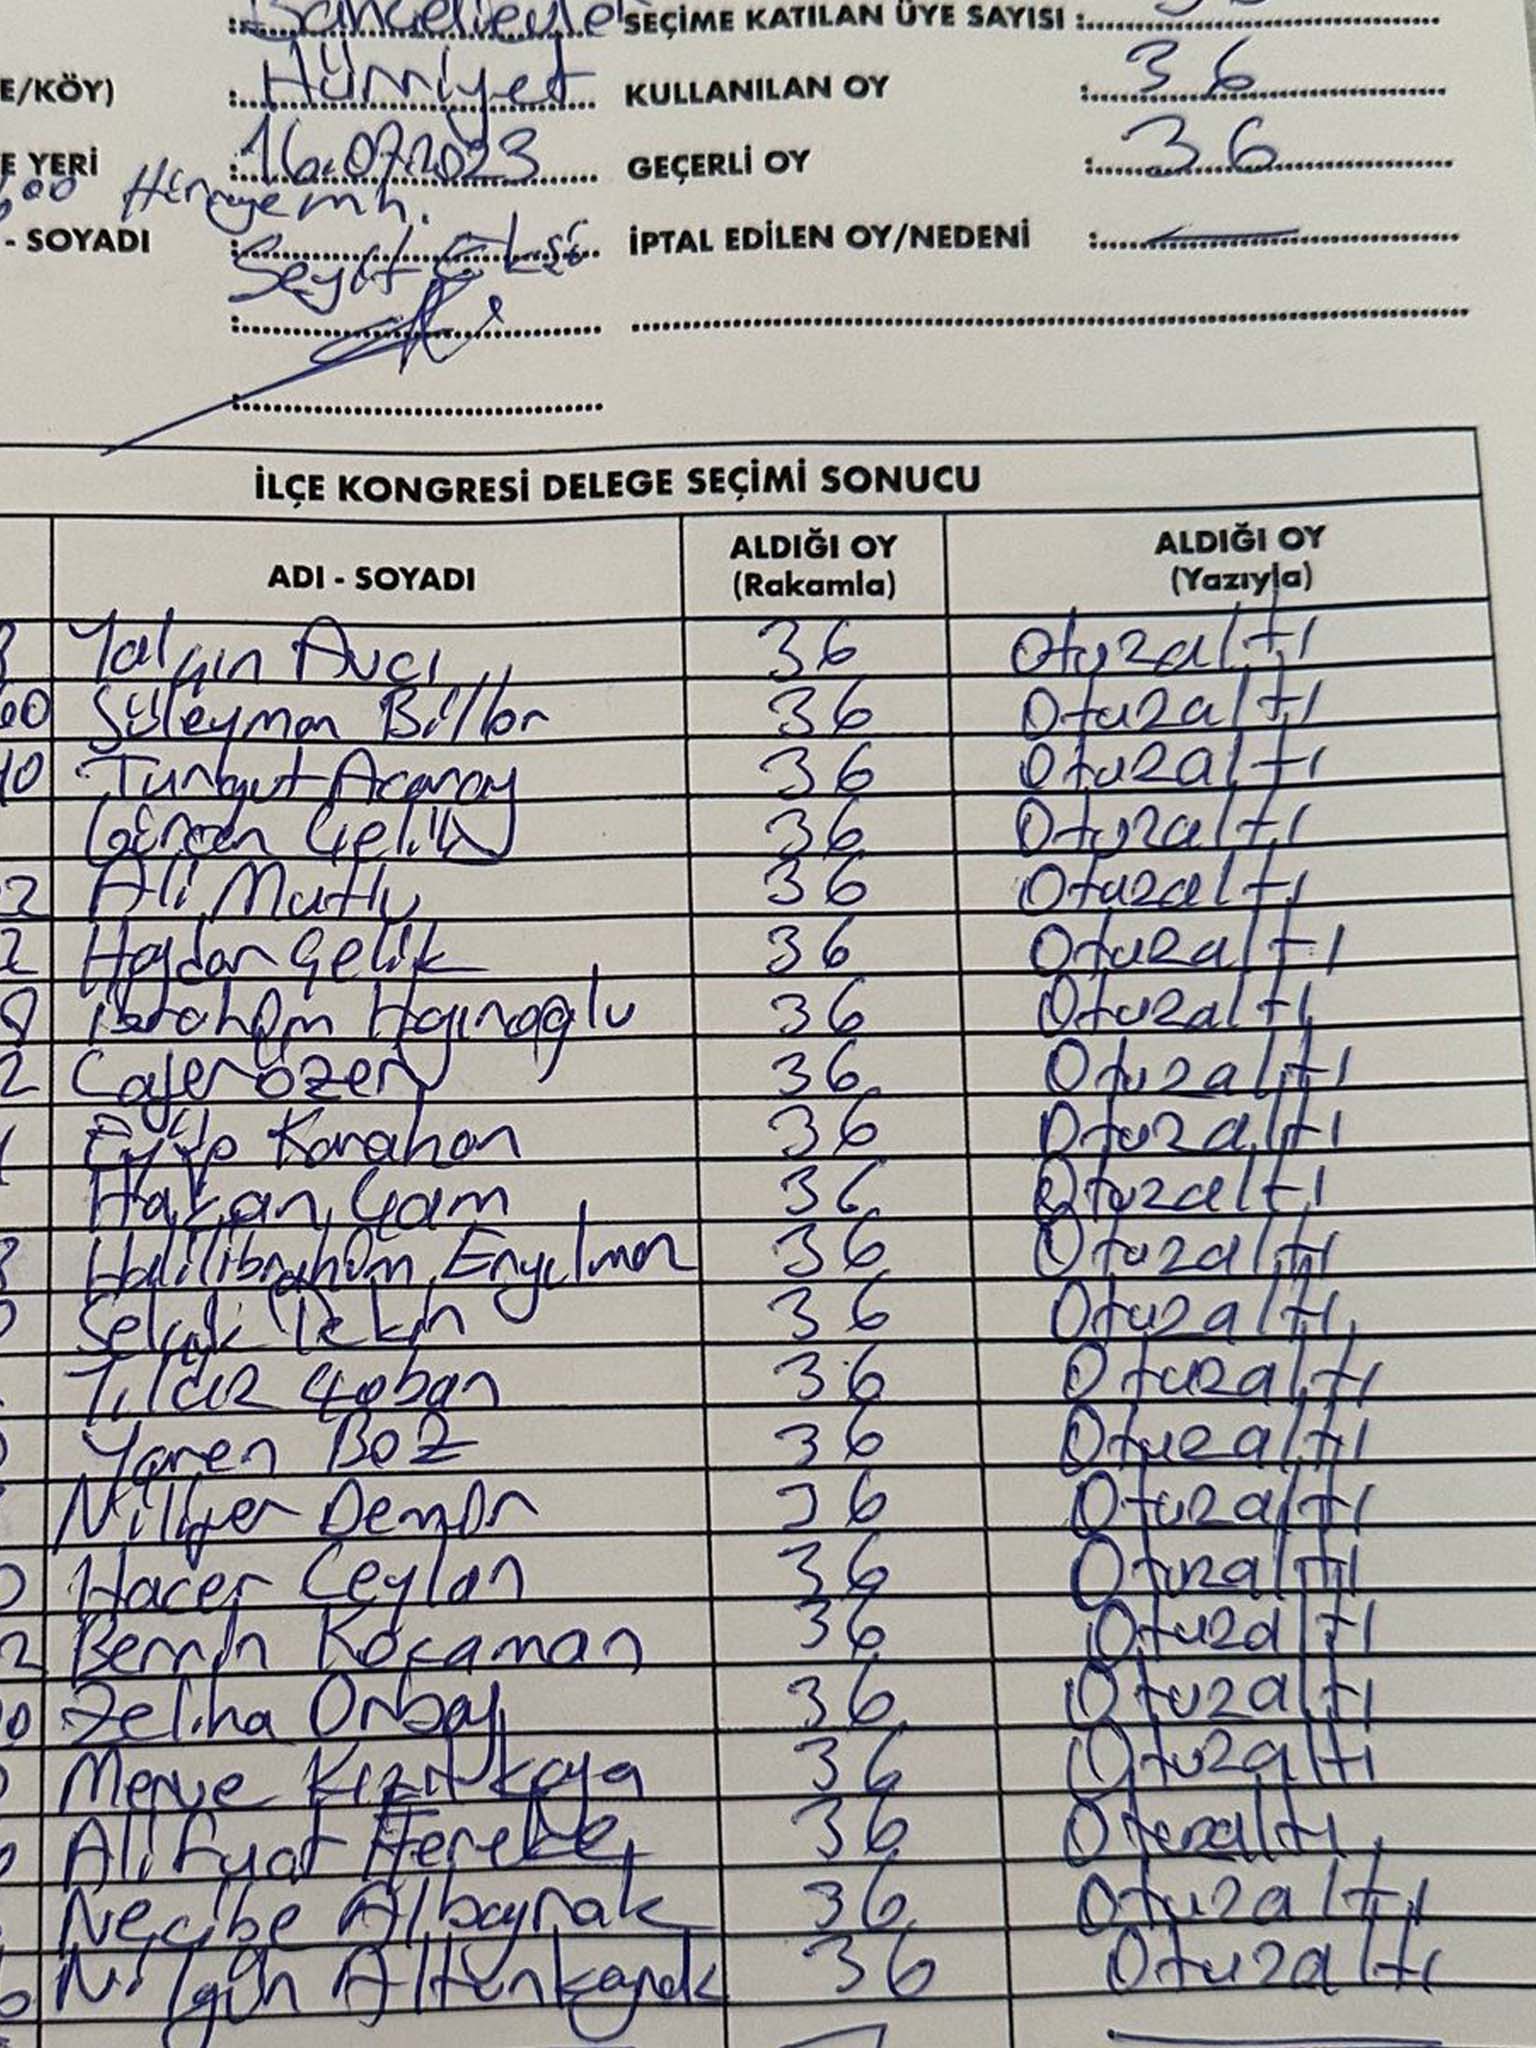 Bahçelievler SEÇİME KATILAN ÜYE SAYISI :
E/KÖY) : Hürriyet KULLANILAN OY : 36
E YERİ : 16.07.2023 GEÇERLİ OY : 36
00 Hürriyet mh.
- SOYADI : Seyit İPTAL EDİLEN OY/NEDENİ : —
İLÇE KONGRESİ DELEGE SEÇİMİ SONUCU
ADI - SOYADI ALDIĞI OY (Rakamla) ALDIĞI OY (Yazıyla)
Yalçın Avcı 36 Otuzaltı
Süleyman 36 Otuzaltı
Turgut Acaray 36 Otuzaltı
Gürcan Çelik 36 Otuzaltı
Ali Mutlu 36 Otuzaltı
Haydar Çelik 36 Otuzaltı
İbrahim 36 Otuzaltı
Cafer Özer 36 Otuzaltı
Eyüp Karahan 36 Otuzaltı
Hakan Çam 36 Otuzaltı
Halilibrahim Eryılmaz 36 Otuzaltı
Selçuk Tekin 36 Otuzaltı
Yıldız Çoban 36 Otuzaltı
Yaren Boz 36 Otuzaltı
Nilüfer Demir 36 Otuzaltı
Hacer Ceylan 36 Otuzaltı
Kocaman 36 Otuzaltı
Zeliha Orbay 36 Otuzaltı
Merve Kızılkaya 36 Otuzaltı
Ali Fuat Hereke 36 Otuzaltı
Necibe Albayrak 36 Otuzaltı
Nilgün Altunkaynak 36 Otuzaltı